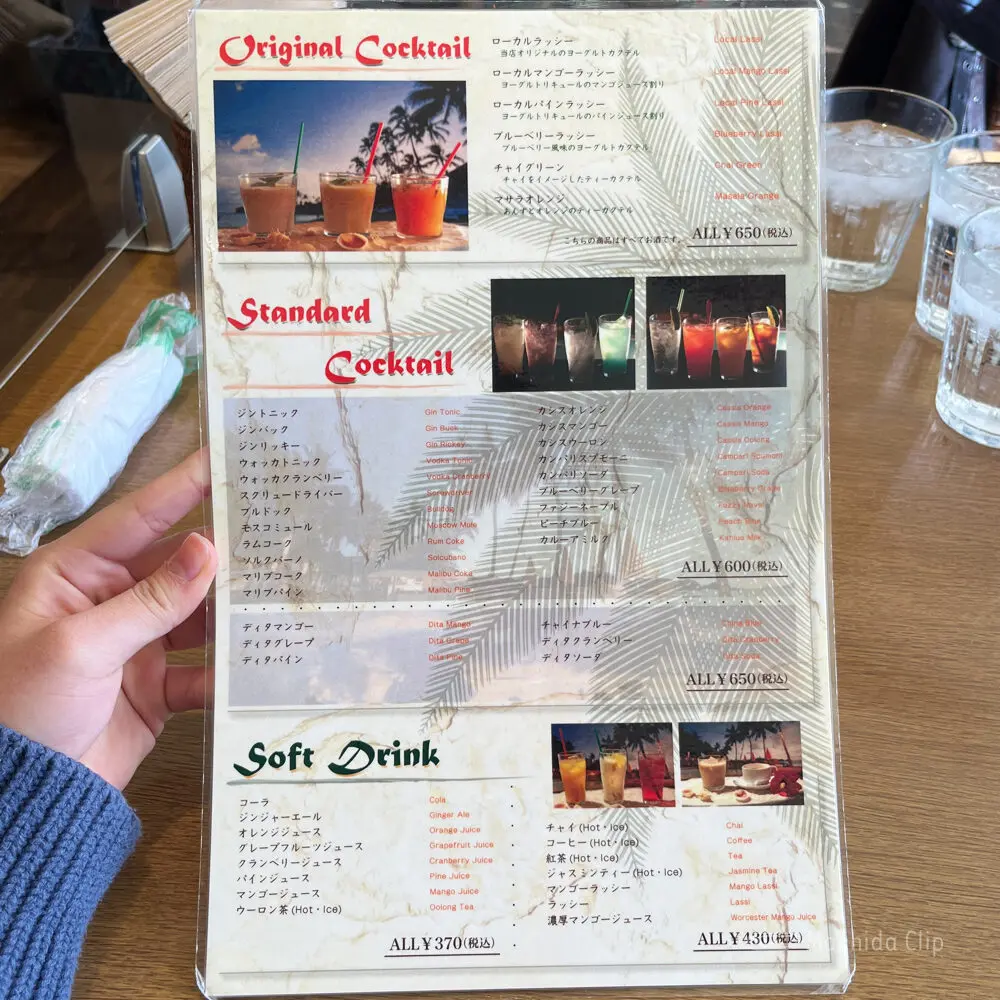 Original Cocktail
ローカルラッシー Local Lassi
当店オリジナルのヨーグルトカクテル
ローカルマンゴーラッシー Local Mango Lassi
ヨーグルトリキュールのマンゴジュース割り
ローカルパインラッシー Local Pine Lassi
ヨーグルトリキュールのパインジュース割り
ブルーベリーラッシー Blueberry Lassi
ブルーベリー風味のヨーグルトカクテル
チャイグリーン Chai Green
チャイをイメージしたティーカクテル
マサラオレンジ Masala Orange
あんずとオレンジのティーカクテル
こちらの商品はすべてお酒です。 ALL¥650(税込)
Standard
Cocktail
ジントニック Gin Tonic
ジンバック Gin Buck
ジンリッキー Gin Rickey
ウォッカトニック Vodka Tonic
ウォッカクランベリー Vodka Cranberry
スクリュードライバー Screwdriver
ブルドック Bulldog
モスコミュール Moscow Mule
ラムコーク Rum Coke
ソルクバーノ Solcubano
マリブコーク Malibu Coke
マリブパイン Malibu Pine
カシスオレンジ Cassis Orange
カシスマンゴー Cassis Mango
カシスウーロン Cassis Oolong
カンパリスプモーニ Campari Spumoni
カンパリソーダ Campari Soda
ブルーベリーグレープ
ファジーネーブル
ピーチブルー
カルーアミルク
ALL¥600(税込)
ディタマンゴー Dita Mango
ディタグレープ Dita Grape
ディタパイン Dita Pine
チャイナブルー China Blue
ディタクランベリー Dita Cranberry
ディタソーダ Dita Soda
ALL¥650(税込)
Soft Drink
コーラ Cola
ジンジャーエール Ginger Ale
オレンジジュース Orange Juice
グレープフルーツジュース Grapefruit Juice
クランベリージュース Cranberry Juice
パインジュース Pine Juice
マンゴージュース Mango Juice
ウーロン茶(Hot・Ice) Oolong Tea
ALL¥370(税込)
チャイ(Hot・Ice) Chai
コーヒー(Hot・Ice) Coffee
紅茶(Hot・Ice) Tea
ジャスミンティー(Hot・Ice) Jasmine Tea
マンゴーラッシー Mango Lassi
ラッシー Lassi
濃厚マンゴージュース Worcester Mango Juice
ALL¥430(税込)
Machida Clip